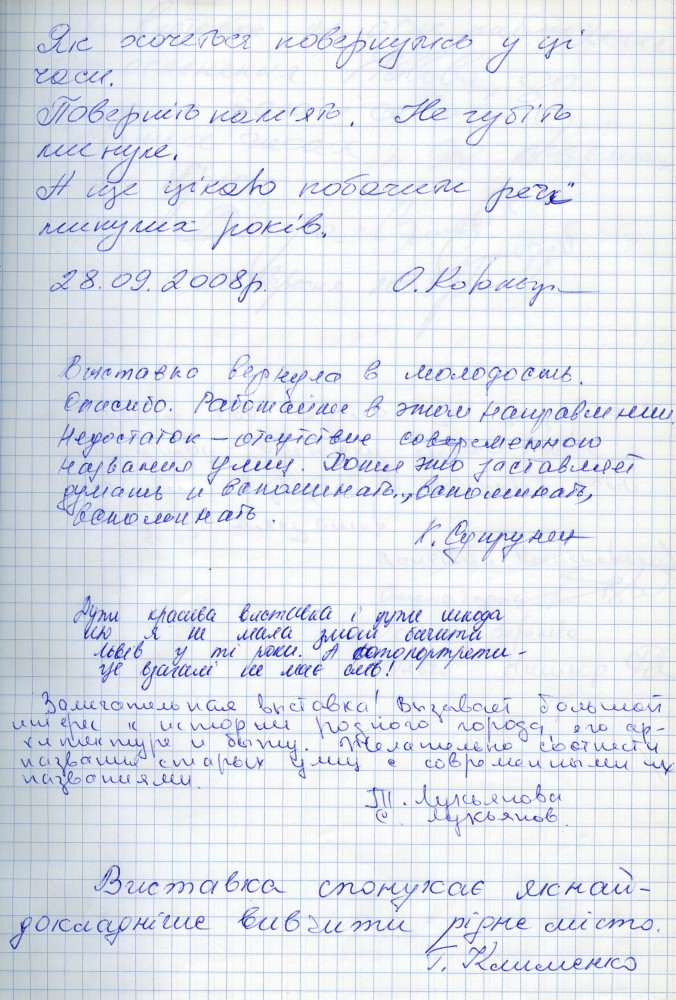 Як хочеться повернутись у ці
часи.
Поверніть пам'ять. Не губіть
минуле.
А ще цікаво побачити речі
минулих років.
28.09.2008р. О.
Выставка вернула в молодость.
Спасибо. Работайте в этом направлении.
Недостаток – отсутствие современного
названия улиц. Хотя это заставляет
думать и вспоминать, вспоминать,
вспоминать.
К. Супрунен
Дуже красива виставка і дуже шкода
що я не мала змоги бачити
Львів у ті роки. А фотопортрети –
це взагалі не має слів!
Замечательная выставка! Вызывает большой
интерес к истории родного города, его ар-
хитектуре и быту. Желательно соотнести
названия старых улиц с современными их
названиями.
Т. Лукьянова
С. Лукьянов.
Виставка спонукає якнай-
докладніше вивчити рідне місто.
Г. Клименко